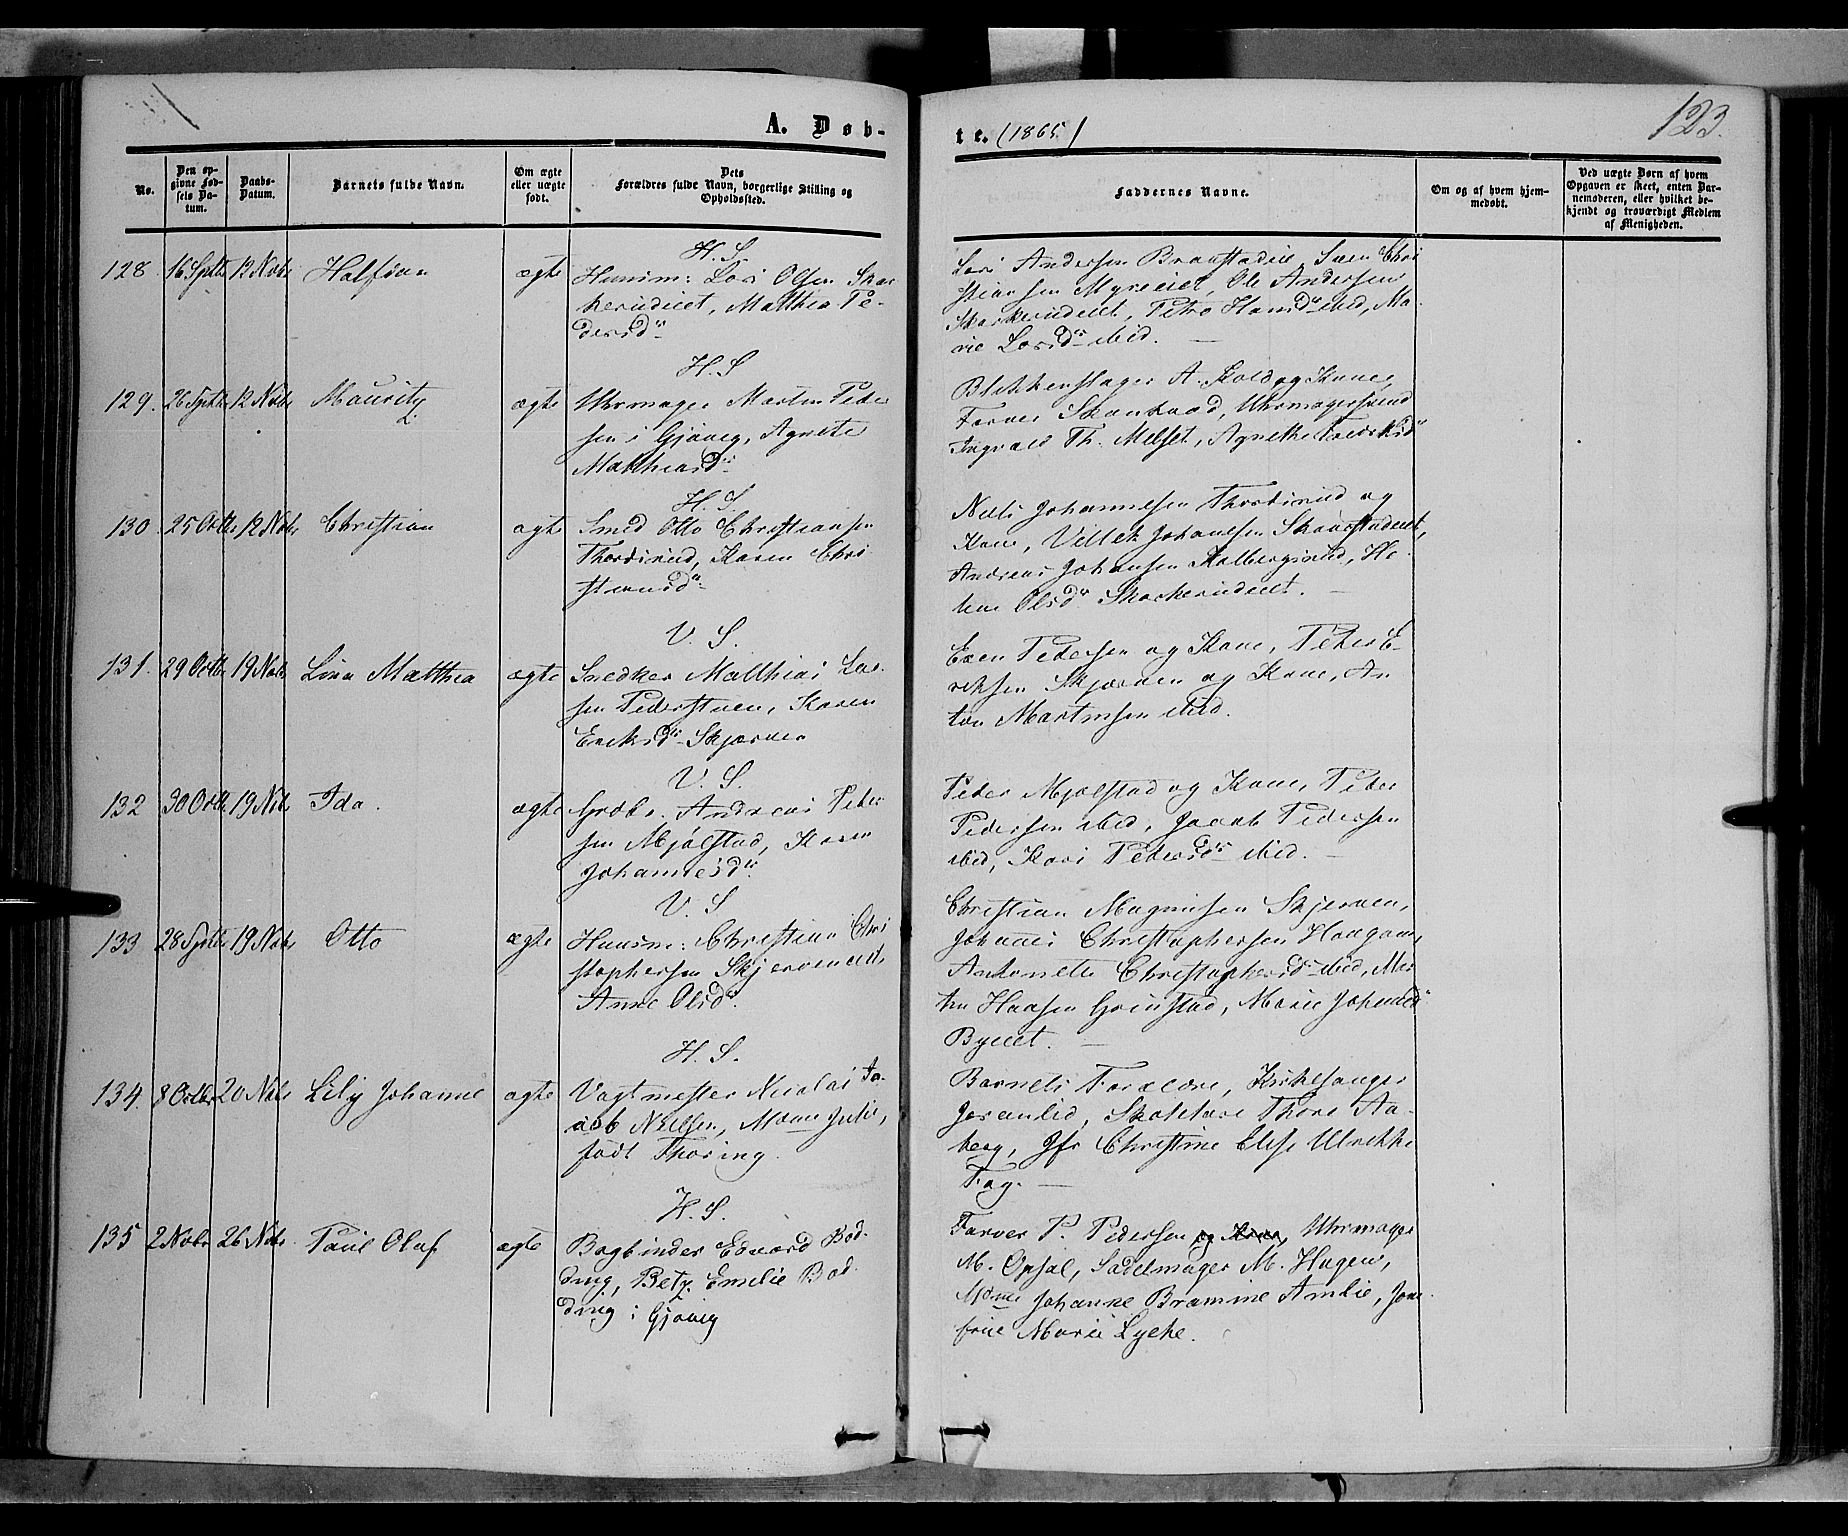 A. Døb-
te. (1865)
123.
No.
Den op-
givne Fød-
sels Da-
tum.
Daabs-
Datum.
Barnets fulde Navn.
Om ægte
eller uægte
født.
Dets
Forældres fulde Navn, borgerlige Stilling og
Opholdssted.
Faddernes Navne.
Om og af hvem hjem-
medøbt.
Ved uægte Børn af hvem
Opgaven er skeet, enten Bar-
nemoderen, eller hvilket be-
kjendt og troværdigt Medlem
af Menigheden.
128. 16 Septbr 12 Nobr Halfvan ægte
H. S.
Huusm: Lars Olsen Skar-
kerudeiet, Matthea Pe-
dersdr
Lars Andersen Braastadeie, Sven Chri
stiansen Myreeiet, Ole Andersen
Skarkerudeiet, Petra Hansdr ibid, Ma-
rie Larsdr ibid. —
129. 26 Septbr 12 Nobr Mauritz ægte
H. S
Uhrmager Martin Peder
sen i Gjøvig, Agnete
Matthiasdr
Blikkenslager A. Kold og Kone,
Farver Skankaad, Uhrmagersvend
Ingvald Th. Melset, Agnethe Fredrksdr
130. 25 Octbr 12 Nobr Christian ægte
H. S.
Smed Otto Christiansen
Thordsrud, Karen Chri
stiansdr
Niels Johannesen Thordsrud og
Kone, Johansen
Andreas Johansen Kolbergsrud, He-
lene Olsdr Skarkerudeiet. —
131. 29 Octbr 19 Nobr Lina Matthea ægte
V. S.
Snedker Matthias Lar-
sen Pederstuen, Karen
Eriksdr Skjerven
Even Pedersen og Kone, Peder E-
riksen Skjerven og Kone, An
ton Martinsen ibid.
132 30 Octbr 19 Nobr Ida. ægte
V. S.
Grdbr. Andreas Peder
sen Mjølstad, Karen
Johannesdr
Peder Mjølstad og Kone, Peder
Pedersen ibid, Jacob Pedersen
ibid, Kari Pedersdr ibid. —
133 28 Septbr 19 Nobr Otto ægte
V. S
Huusm: Christian Chri
stophersen Skjerveneiet,
Anne Olsdr.
Christian Magnusen Skjerven,
Johannes Christophersen Haugan,
Antonette Christophersdr ibid, Mar
tin Hansen Grinstad, Marie Johansdr
Byeiet. —
134. 8 Octbr 20 Nobr Lily Johanne ægte
H. S.
Vagtmester Nicolai Ja-
cob Nielsen, Mdme Julie,
født Thoring.
Barnets Forældre, Kirkesanger
Joranlid, Skolelærer Thore Aa-
berg, Jfr Christine Elise Ulrikke
Fog. —
135 2 Nobr 26 Nobr Paul Olaf ægte
H. S.
Bogbinder Edvard Bod-
ding, Betz. Emilie Bod-
ding i Gjøvig
Farver P. Pedersen og Kone, Uhrmager
M. Opsal, Sadelmager M. Hagen,
Mdme Johanne Bramine Amlie, Jom-
frue Marie Lyche.